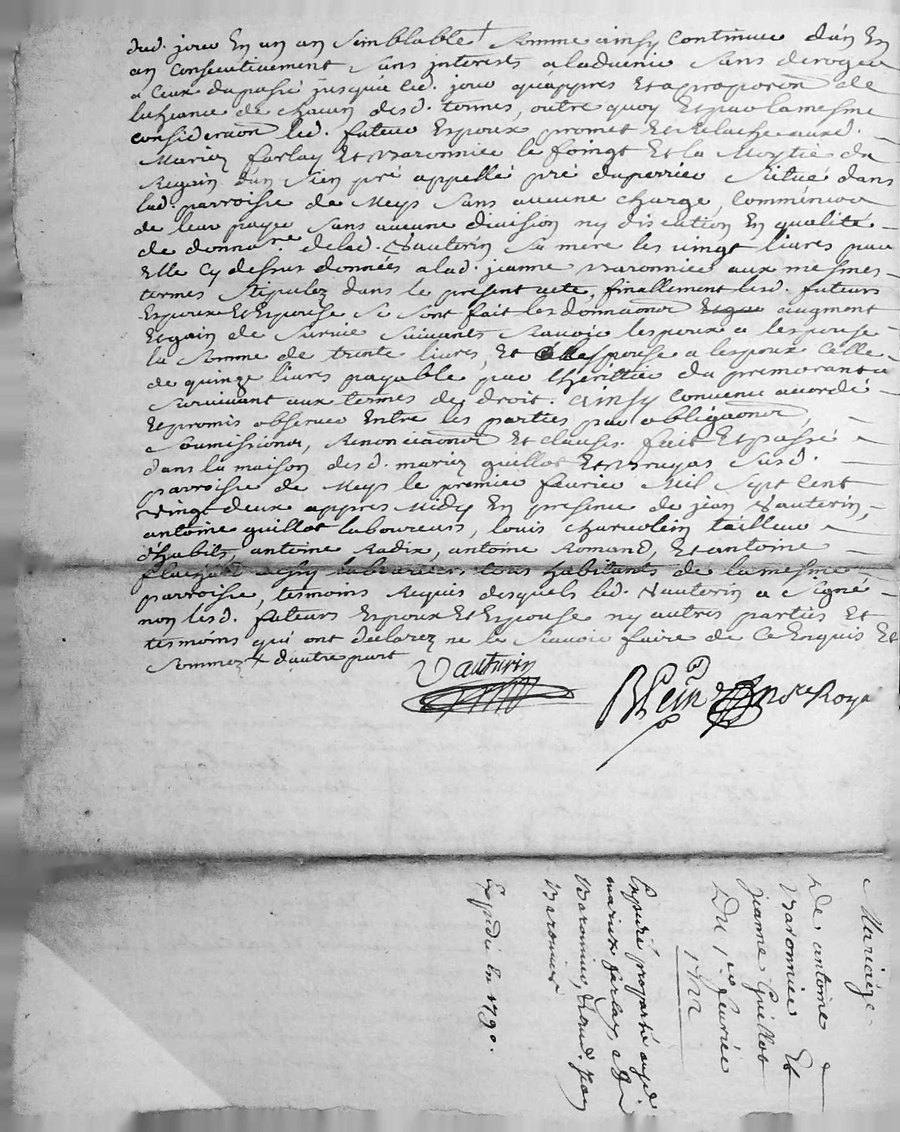 dud. jour En un an Semblable Somme ainsy continuer d'an En
an consecutivement Sans interests a ladvenir Sans deroger
a Ceux du passé jusqu'a led. jour qu'appres Et a proporõn de
lecheance de chacun desd. termes, outre quoy Et par la mesme
consideraõn led. futeur Espoux promet Et Relache auxd.
Mariez farlay Et Varonnier le foingt Et la Moytié du
Regain d'un Sien pré appellé pré duperrier Scitué dans
lad. parroisse de Meys Sans aucune charge, Comm
de leur payer Sans aucune division ny discution En qualité
de donnare delad. Vauterin Sa mere les vingt livres par
Elle Cy dessus données a lad. jeanne Varonnier aux mesmes
termes Stipulez dans le present acte, finallement lesd. futeurs
Espoux Et Espouse Se Sont fait les donnaõns augment
Et gain de Survie Suivants Savoir lespoux a lespouse
la Somme de trente livres, Et lespouse a lespoux Celle
de quinze livres payable par lherittier du premourant au
Survivant aux termes de droit. ainsy convenu accordé
Et promis observer Entre les parties par obligaõns
Soumissions, Renonciaõns Et clauses. fait Et passé
dans la maison desd. mariez guillot Et Bruyas Susd.
parroisse de Meys le premier fevrier Mil Sept Cent
Vingt deux appres Midy En presence de jean Vauterin,
antoine guillot laboureurs, louis charvolin tailleur
d'habits, antoine Radix, antoine Romand, Et antoine
tous habitants de la mesme
parroisse, tesmoins Requis desquels led. Vauterin a Signé
non lesd. futeurs Espoux Et Espouse ny autres parties Et
tesmoins qui ont declarez ne le Savoir faire de Ce Enquis Et
Sommez d'autre part
Vauterin
nore Roya
Mariage
De antoine
Varonnier Et
Jeanne Guillot
Du 1er fevrier
1722
mariez farlay
Varonnier,
Varonnier
Expedié En 1790.